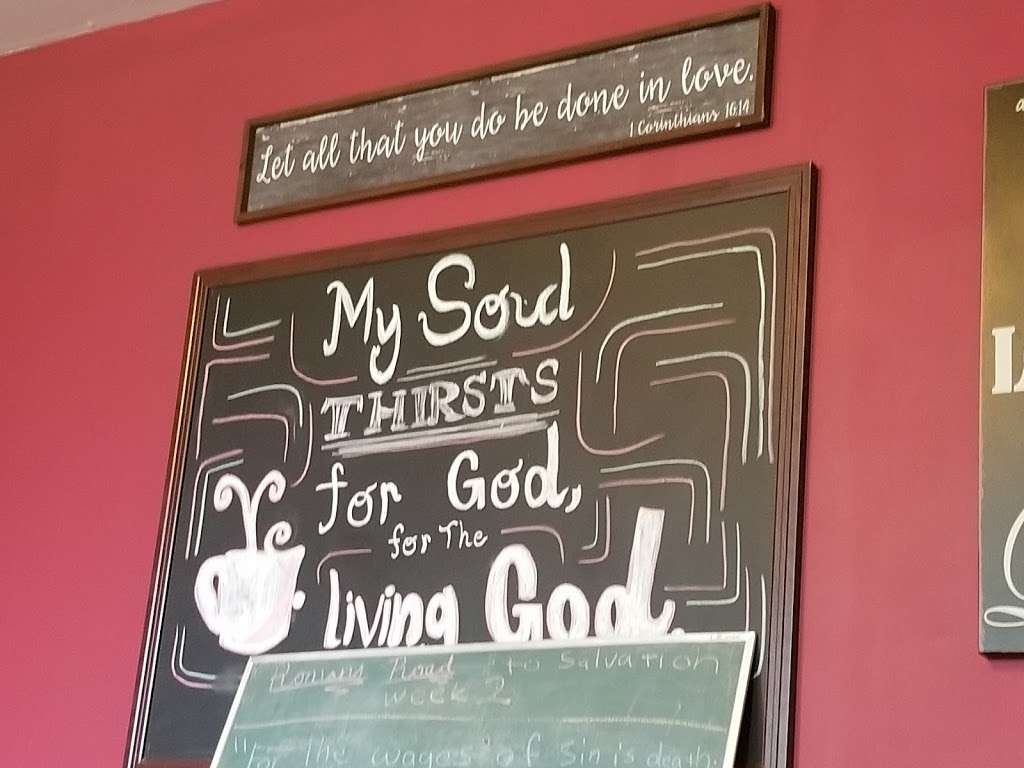 Let all that you do be done in love.
1 Corinthians 16:14
My Soul
THIRSTS
for God,
for The
living God.
Romans Road to Salvation
week 2
"for the wages of Sin is death.